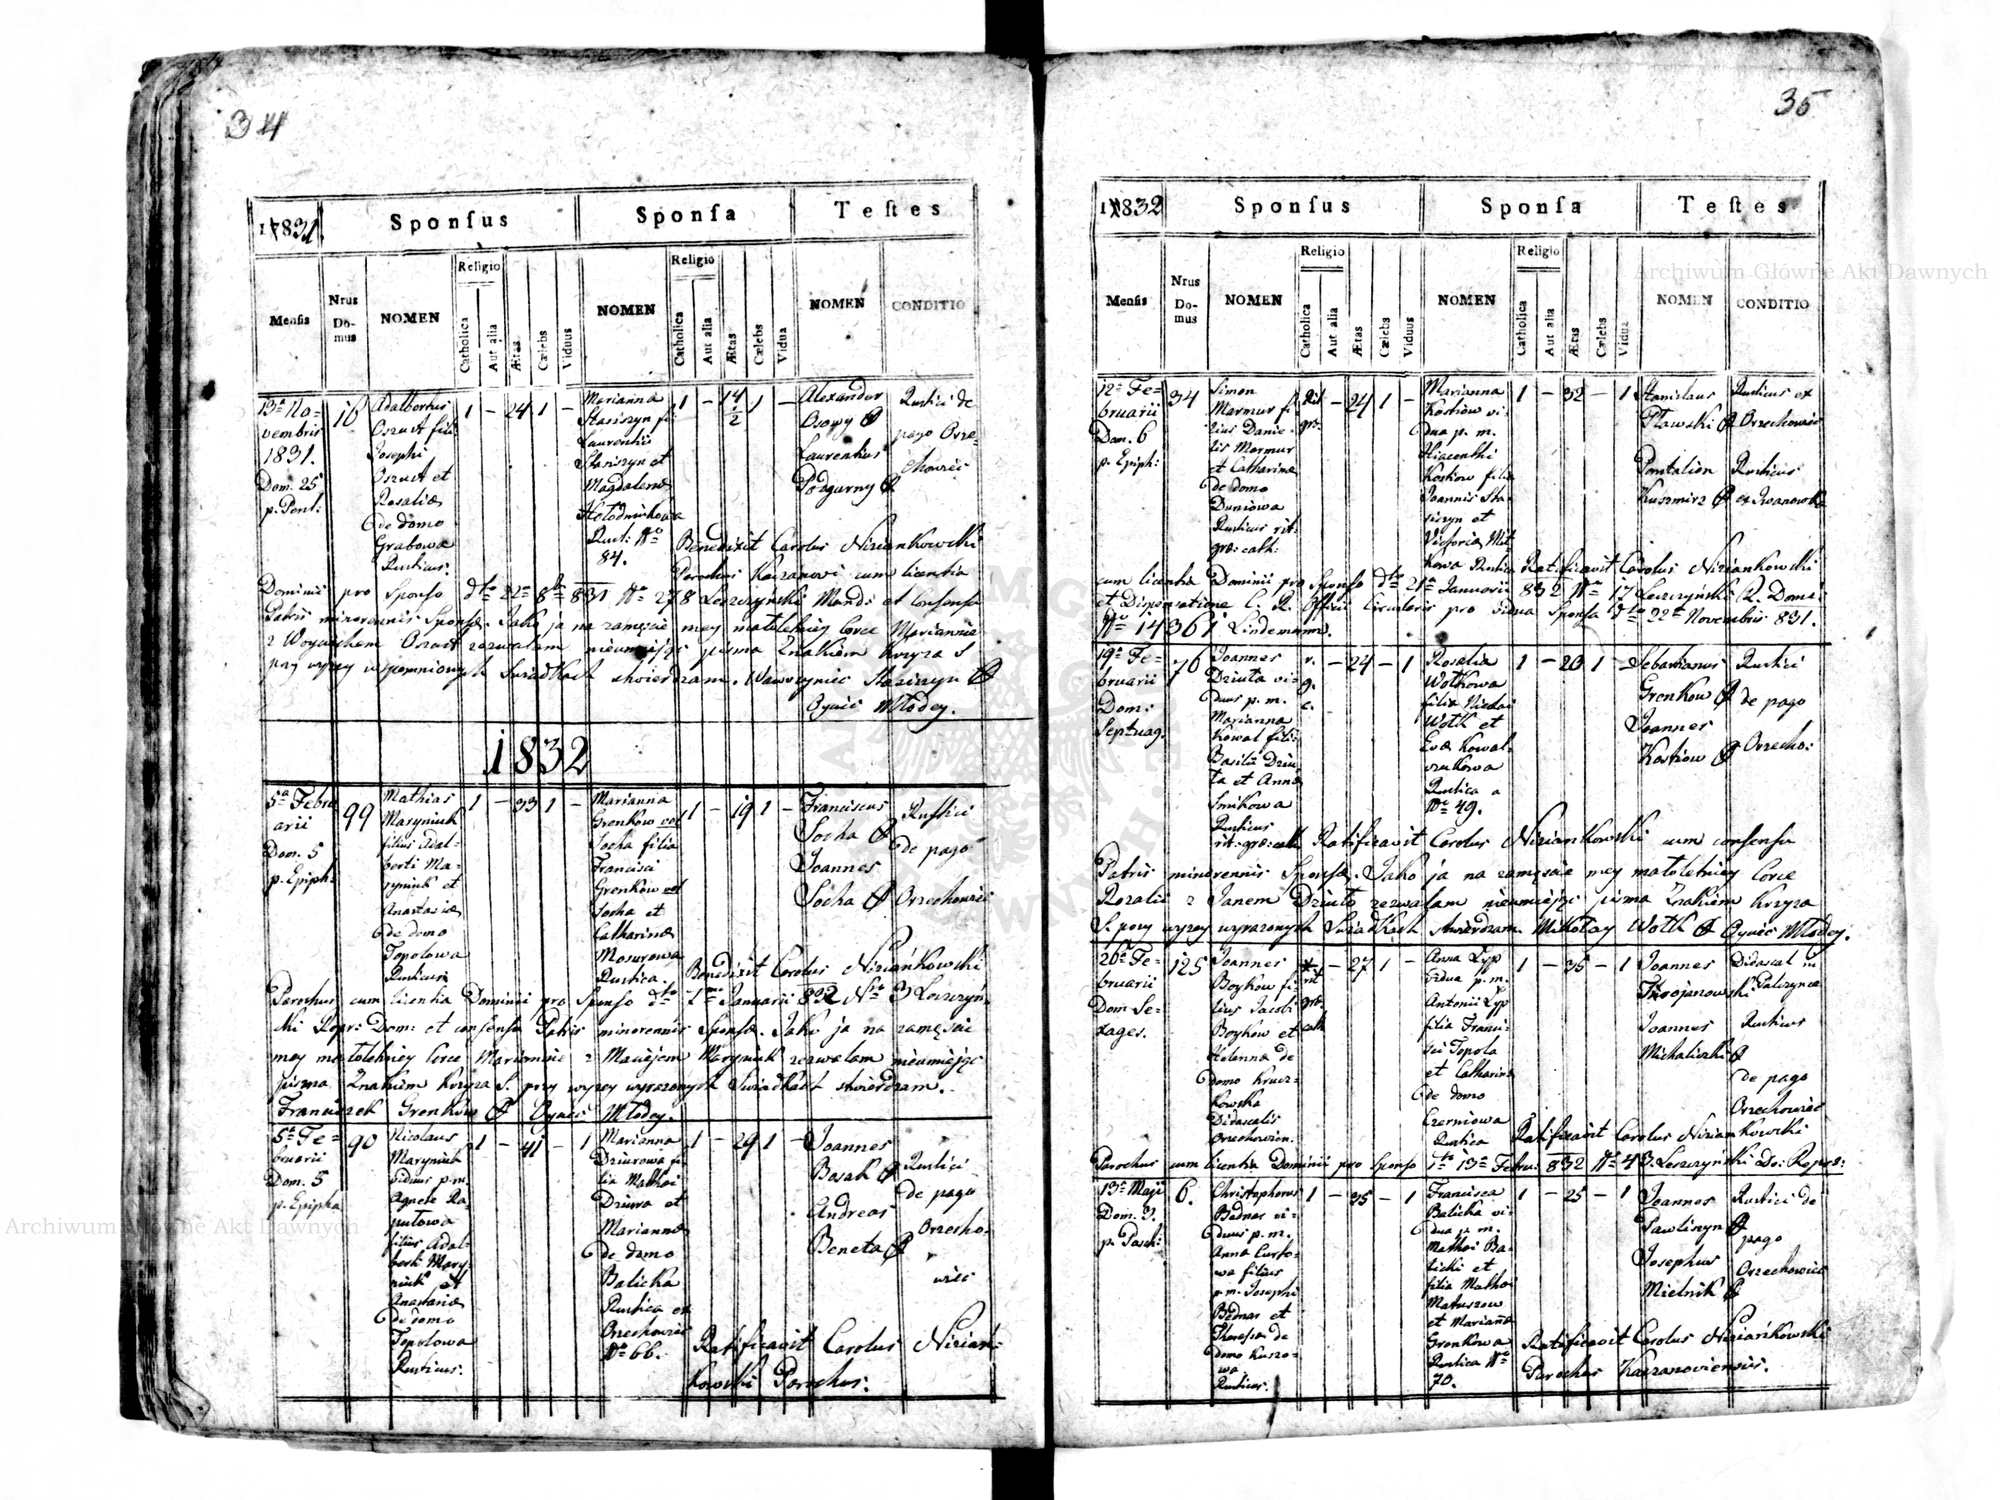 34
17831.
Sponsus
Sponsa
Testes
Mensis
Nrus Domus
NOMEN
Religio
Catholica
Aut alia
Ætas
Cælebs
Viduus
NOMEN
Religio
Catholica
Aut alia
Ætas
Cælebs
Vidua
NOMEN
CONDITIO
13a No=
vembris
1831.
Dom. 25
p. Pent:
16
Adalbertus
Oszust fili:
Josephi
Oszust et
Rosaliæ
de domo
Grabowa
Rusticus.
1 – 24 1 –
Marianna
Stasiszyn fi:
Laurentii
Stasiszyn et
Magdalenæ
Hołodnikowa
Rust: No
84.
1 – 14 1/2 1 –
Alexander
Osowy
Laurentius
Podgurny
Rustici de
pago Orze=
chowiec
Benedixit Carolus Niziankowski
Parochus Kaczanovi cum licentia
Dominii pro Sponso dto 22a 8bris 831 No 278 Leszczyński Mand: et Consensu
Patris minorennis Sponsæ. Jako ja na zamęscie mey małoletniey Corce Mariannie
z Woyciechem Oszust zezwalam nieumiejąc pisma Znakiem krzyza S
przy wyzey wspomnionych Swiadkach stwierdzam. Wawrzyniec Stasiszyn
Oyciec Młodey.
1832
5a Febru
arii
Dom. 5
p. Epiph:
99
Mathias
Maryniuk
filius Adal=
berti Ma=
ryniuk et
Anastasiæ
de domo
Topolowa
Rusticus
1 – 33 1 –
Marianna
Gronkow vel
Socha filia
Francisci
Gronkow vel
Socha et
Catharinæ
Mosurowa
Rustica.
1 – 19 1 –
Franciscus
Socha
Joannes
Socha
Rustici
de pago
Orzechowiec
Benedixit Carolus Niziankowski
Parochus cum licentia Dominii pro Sponso dto 1ma Januarii 832 No 3 Leszczyń=
ski Repr: Dom: et consensu Patris minorennis Sponsæ. Jako ja na zamęscie
mey małoletniey Corce Mariannie z Maciejem Maryniuk zezwalam nieumiejąc
pisma Znakiem krzyza S. przy wyzey wyrazonych Swiadkach stwierdzam.
Franciszek Gronków Oyciec Młodey.
5a Fe=
bruarii
Dom. 5
p. Epipha
90
Nicolaus
Maryniuk
viduus p. m.
Agnete Ra=
putowa
filius Adal=
berti Mary=
niuk et
Anastasiæ
de domo
Topolowa
Rusticus.
1 – 41 – 1
Marianna
Dziurowa fi=
lia Mathæi
Dziura et
Mariannæ
de domo
Balicka
Rustica ex
Orzechowiec
No 66.
1 – 29 1 –
Joannes
Bosak
Andreas
Beneta
Rustici
de pago
Orzecho=
wiec
Ratificavit Carolus Nizian=
kowski Parochus.
35
17832
Sponsus
Sponsa
Testes
Mensis
Nrus Domus
NOMEN
Religio
Catholica
Aut alia
Ætas
Cælebs
Viduus
NOMEN
Religio
Catholica
Aut alia
Ætas
Cælebs
Vidua
NOMEN
CONDITIO
12a Fe=
bruarii
Dom. 6
p. Epiph:
34
Simon
Marmur fi=
lius Danie=
lis Marmur
et Catharinæ
de domo
Duniowa
Rusticus rit:
græ: cath:
Rit
gr:
– 24 1 –
Marianna
Kostiow vi=
dua p. m.
Hiacenthi
Kostiow filia
Joannis Sta=
siszyn et
Victoriæ Mit
kowa Rustica
1 – 32 – 1
Stanislaus
Pławski
Pantalion
Kuszmirz
Rusticus ex
Orzechowiec
Rusticus
ex Iwanowka
Ratificavit Carolus Niziankowski
cum licentia Dominii pro Sponso dto 21a Januarii 832 No 17 Leszczyński R. Domi:
et Dispensatione C. R. Officii Circularis pro vidua Sponsa dto 22a Novembris 831.
No 14361 Lindemann.
19a Fe=
bruarii
Dom:
Septuag.
76
Joannes
Dziuta vi=
duus p. m.
Marianna
Kowal fili:
Basilii Dziu=
ta et Annæ
Smikowa
Rusticus
rit: græ: cath
r.
g.
c.
– 24 – 1
Rosalia
Wołkowa
filia Nicolai
Wołk et
Evæ Kowal=
czukowa
Rustica a
No 49.
1 – 20 1 –
Sebastianus
Gronkow
Joannes
Kostiow
Rustici
de pago
Orzecho:
Ratificavit Carolus Niziankowski cum consensu
Patris minorennis Sponsæ. Jako ja na zamęscie mey małoletniey Corce
Rozalii z Janem Dziuto zezwalam nieumiejąc pisma Znakiem krzyza
S. przy wyzey wyrazonych Swiadkach stwierdzam. Mikołay Wołk Oyciec Młodey.
26a Fe=
bruarii
Dom Se=
xages.
125
Joannes
Boykow fi=
lius Jacobi
Boykow et
Helenna de
domo Krucz=
kowska
Didascalis
Orzechovien.
rit
gre
cath
– 27 1 –
Anna Lyp
vidua p. m.
Antonii Lyp
filia Franci=
sci Topola
et Catharinæ
de domo
Czerniowa
Rustica
1 – 35 – 1
Joannes
Throjanowski
Joannes
Michaliszki
Didascal in
Palczynce
Rusticus
de pago
Orzechowiec
Ratificavit Carolus Niziankowski
Parochus cum licentia Dominii pro Sponso dto 13a Febru: 832 No 43. Leszczyński Do: Repres:
13a Maji
Dom. 3.
p. Pasch:
6.
Christophorus
Bednas vi=
duus p. m.
Anna Curko=
wa filius
p. m. Josephi
Bednas et
Theresiæ de
domo Kuszo=
wa
Rusticus.
1 – 35 – 1
Francisca
Balicka vi=
dua p. m.
Mathæi Ba=
licki et
filia Mathæi
Matuszow
et Marianæ
Gronkowa
Rustica No
70.
1 – 25 – 1
Joannes
Pawlinyn
Josephus
Mielnik
Rustici de
pago
Orzechowiec
Ratificavit Carolus Niziankowski
Parochus Kaczanoviensis.
Archiwum Główne Akt Dawnych
Archiwum Główne Akt Dawnych